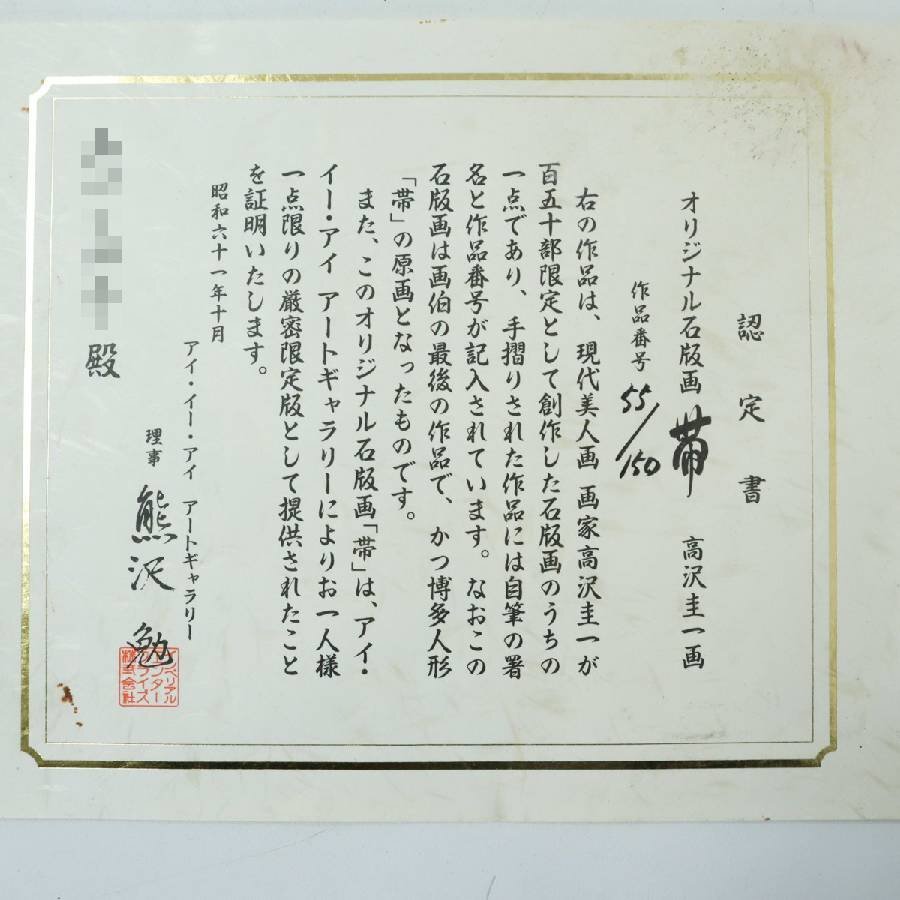 認定書
オリジナル石版画 帯 高沢圭一画
作品番号 55/150
右の作品は、現代美人画 画家高沢圭一が
百五十部限定として創作した石版画のうちの
一点であり、手摺りされた作品には自筆の署
名と作品番号が記入されています。なおこの
石版画は画伯の最後の作品で、かつ博多人形
「帯」の原画となったものです。
また、このオリジナル石版画「帯」は、アイ・
イー・アイ アートギャラリーによりお一人様
一点限りの厳密限定版として提供されたこと
を証明いたします。
昭和六十一年十月
アイ・イー・アイ アートギャラリー
理事 熊沢 勉
殿